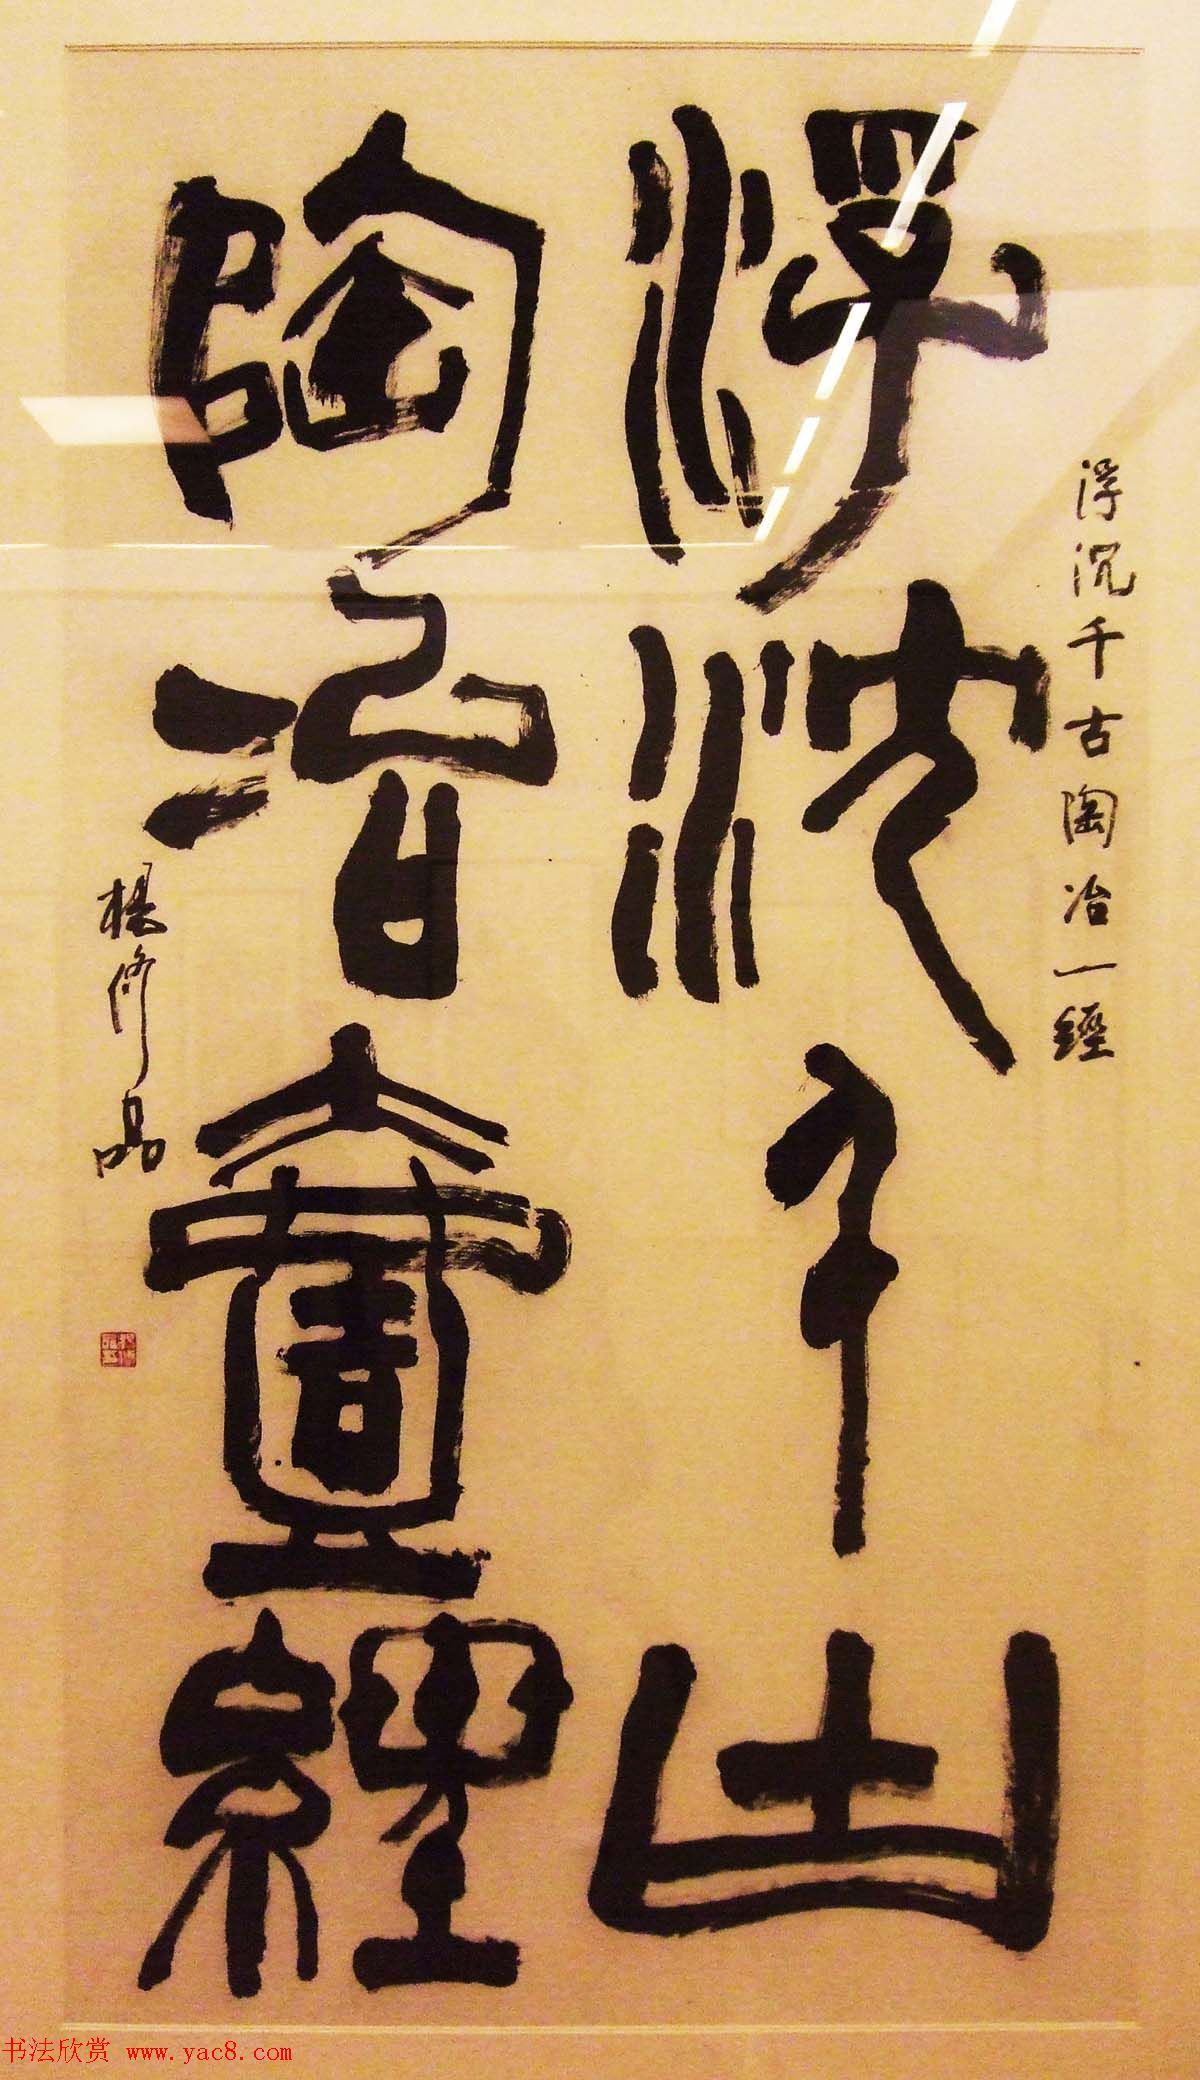 浮沉千古陶冶一經
浮沈千古
陶冶壹經
楊修品
书法欣赏 www.yac8.com